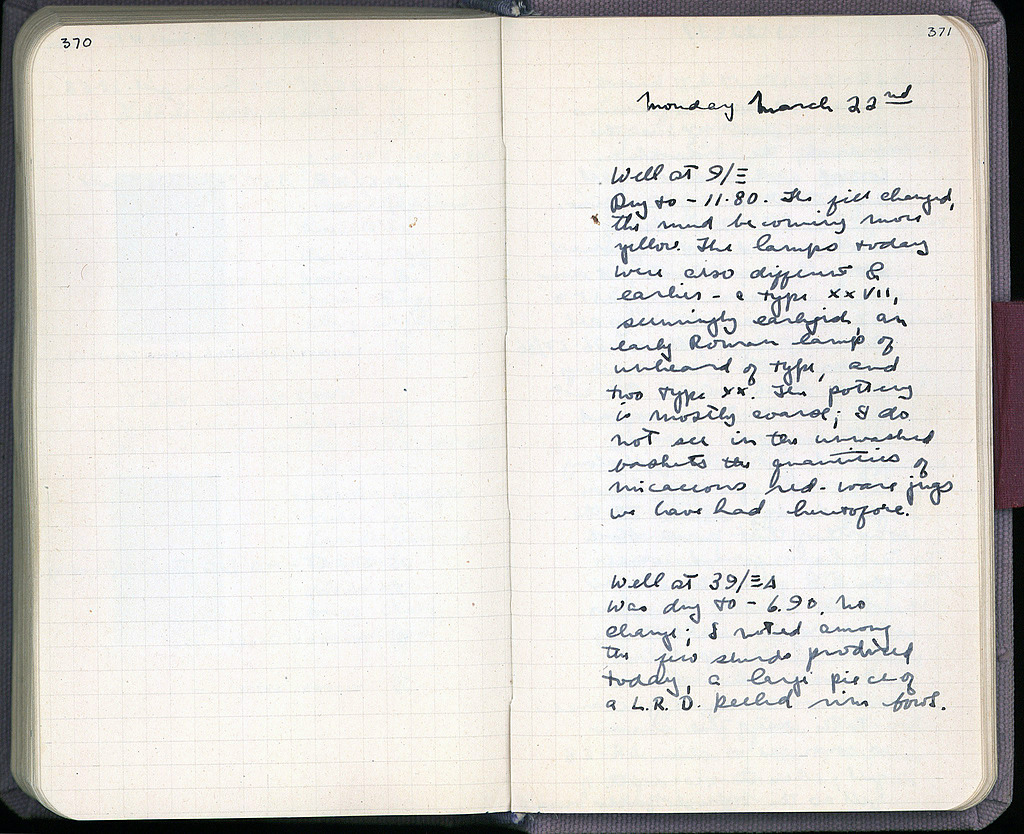 370
371
Monday March 22nd
Well at 9/Ξ
Dug to - 11.80. The fill changed,
the mud becoming more
yellow. The lamps today
were also different &
earlier - a type XXVII,
seemingly earlyish, an
early Roman lamp of
unheard of type, and
two type XX. The pottery
is mostly coarse; I do
not see in the unwashed
baskets the quantities of
micaceous red-ware jugs
we have had heretofore.
Well at 39/ΞΔ
was dug to - 6.90. No
change; I noted among
the few sherds produced
today, a large piece of
a L.R. D. rim bowl.